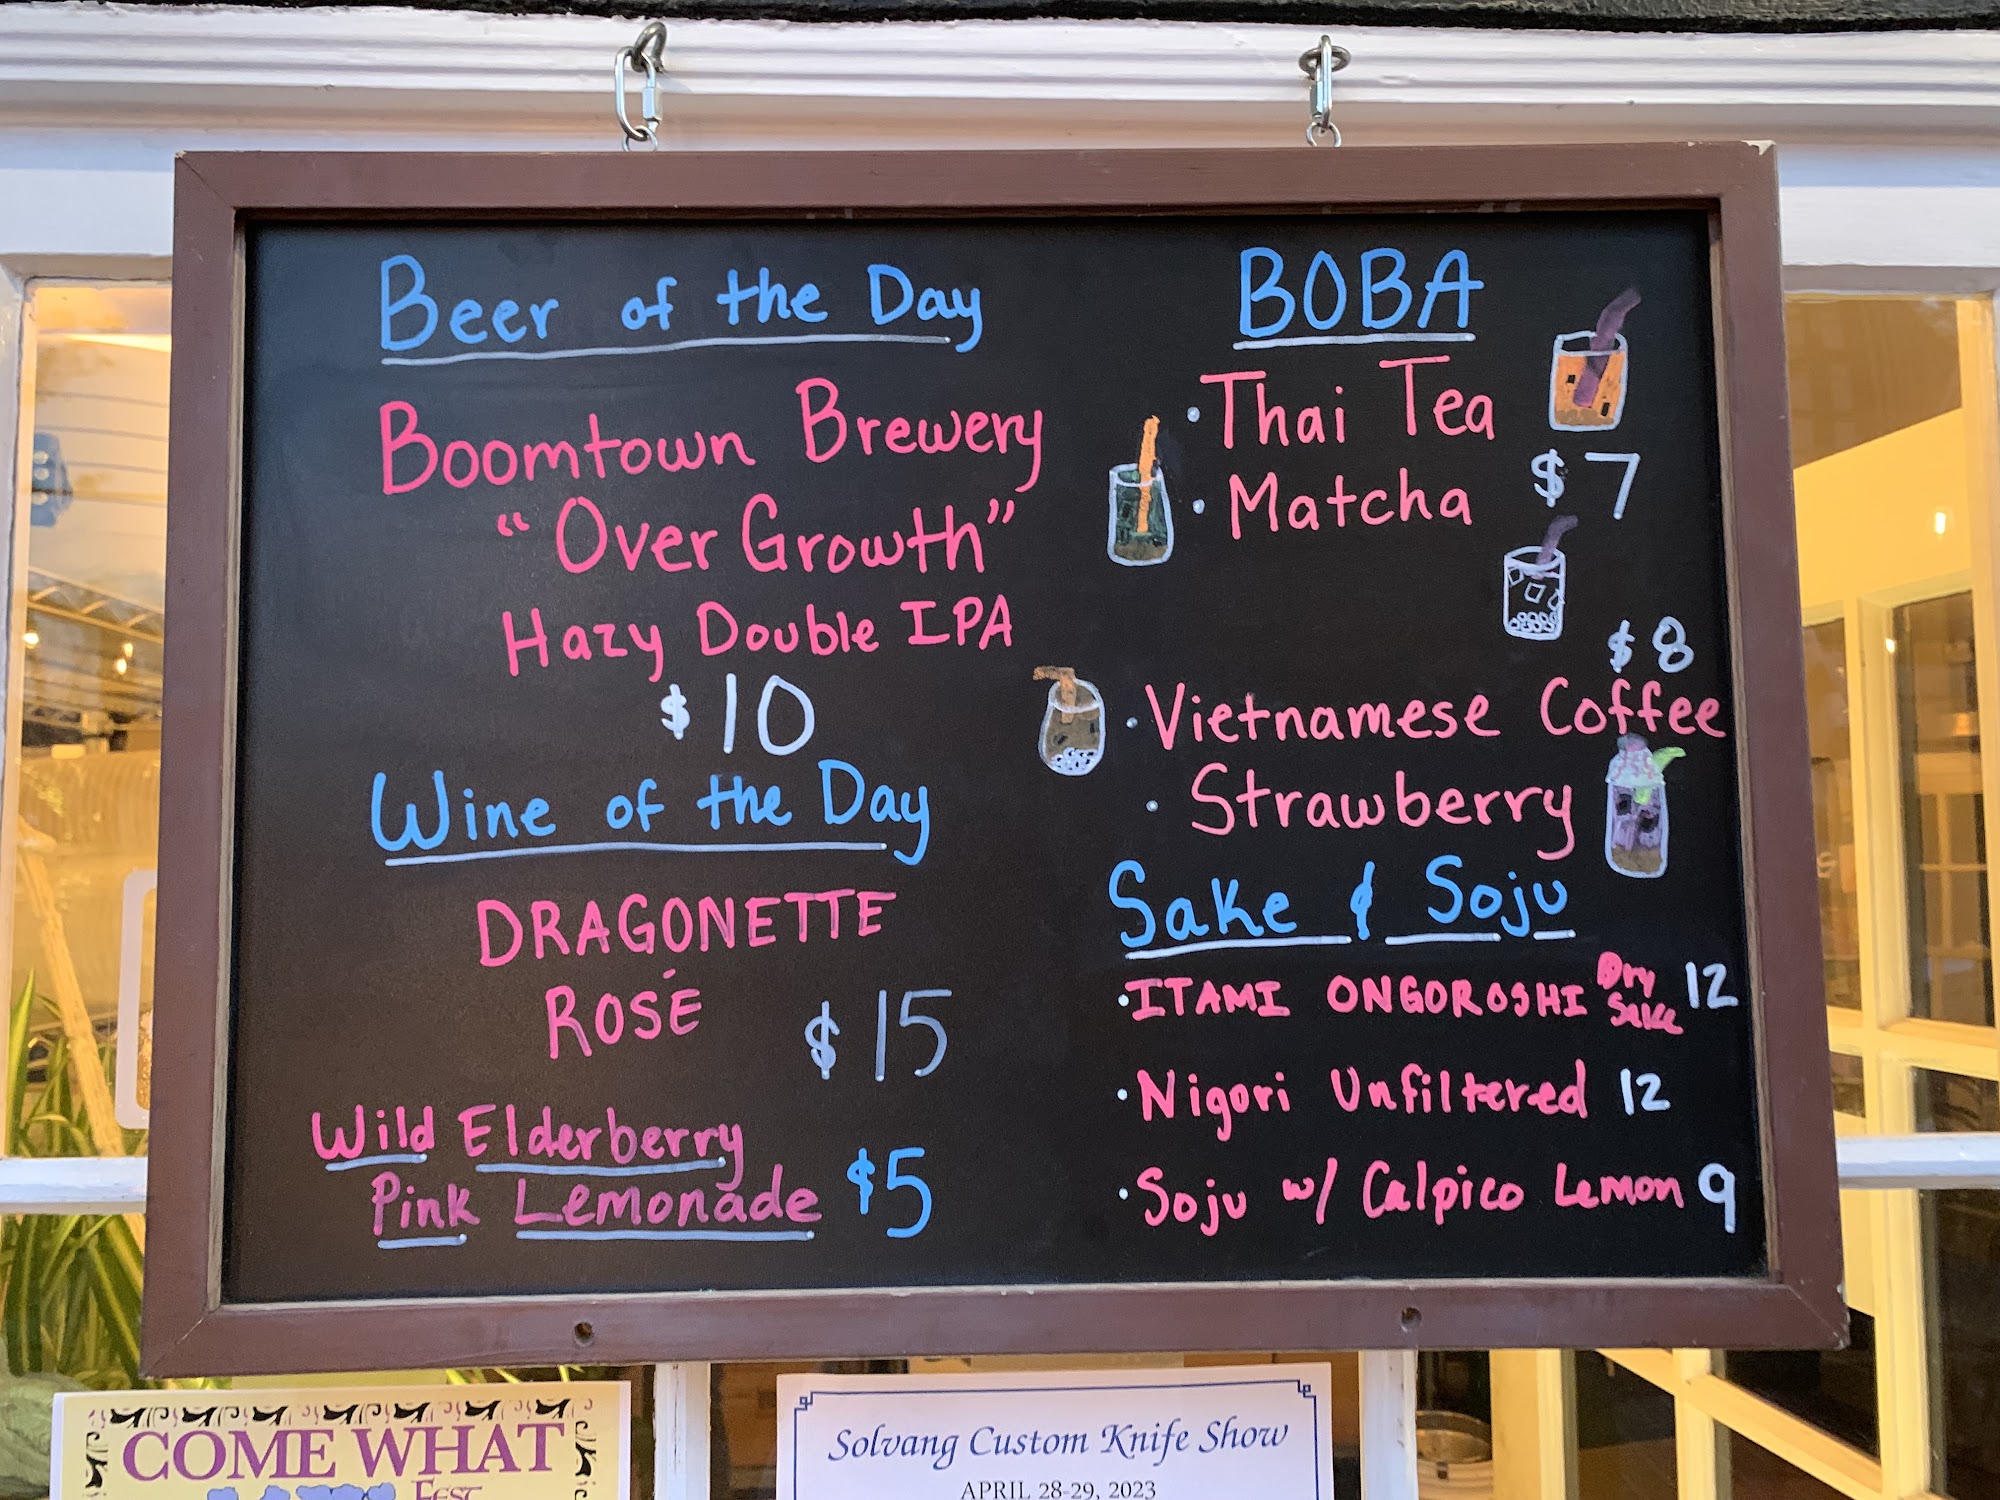 Beer of the Day
Boomtown Brewery
"Over Growth"
Hazy Double IPA
$10
Wine of the Day
DRAGONETTE
ROSÉ
$15
Wild Elderberry
Pink Lemonade $5
BOBA
· Thai Tea
· Matcha
$7
$8
· Vietnamese Coffee
· Strawberry
Sake & Soju
· ITAMI ONGOROSHI Dry Sake 12
· Nigori Unfiltered 12
· Soju w/ Calpico Lemon 9
COME WHAT
FEST
Solvang Custom Knife Show
APRIL 28-29, 2023